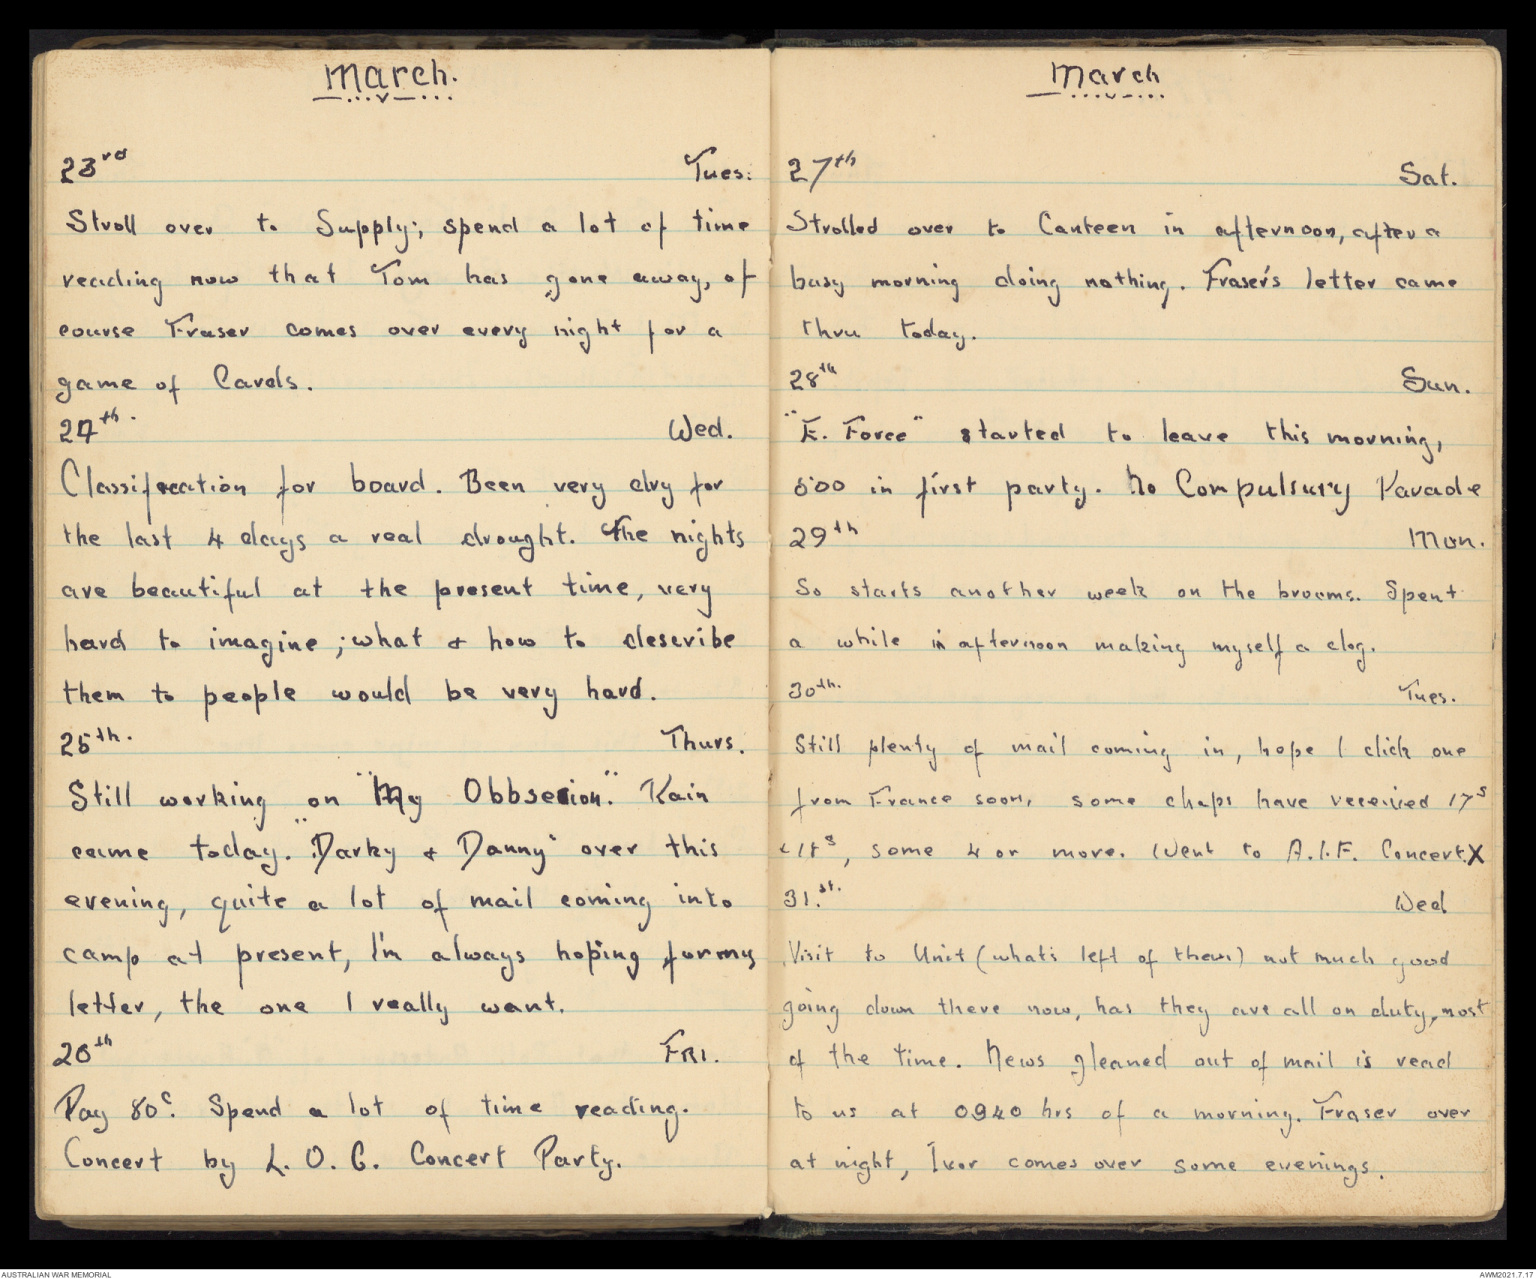 March.
23rd Tues:
Stroll over to Supply; spend a lot of time
reading now that Tom has gone away, of
course Fraser comes over every night for a
game of Cards.
24th. Wed.
Classification for board. Been very dry for
the last 4 days a real drought. The nights
are beautiful at the present time, very
hard to imagine; what & how to describe
them to people would be very hard.
25th. Thurs.
Still working on "My Obbsesion". Rain
came today. "Darky & Danny" over this
evening, quite a lot of mail coming into
camp at present, I'm always hoping for my
letter, the one I really want.
26th FRI.
Pay 80c. Spend a lot of time reading.
Concert by L. O. G. Concert Party.
March
27th Sat.
Strolled over to Canteen in afternoon, after a
busy morning doing nothing. Fraser's letter came
thru today.
28th Sun.
"F. Force" started to leave this morning,
600 in first party. No Compulsury Parade
29th Mon.
So starts another week on the brooms. Spent
a while in afternoon making myself a clog.
30th. Tues.
Still plenty of mail coming in, hope I click one
from France soon, some chaps have received 17s
, some 4 or more. Went to A.I.F. Concert.X
31.st. Wed
Visit to Unit (what's left of them) not much good
going down there now, has they are all on duty, most
of the time. News gleaned out of mail is read
to us at 0940 hrs of a morning. Fraser over
at night, Ivor comes over some evenings.
AUSTRALIAN WAR MEMORIAL
AWM2021.7.17